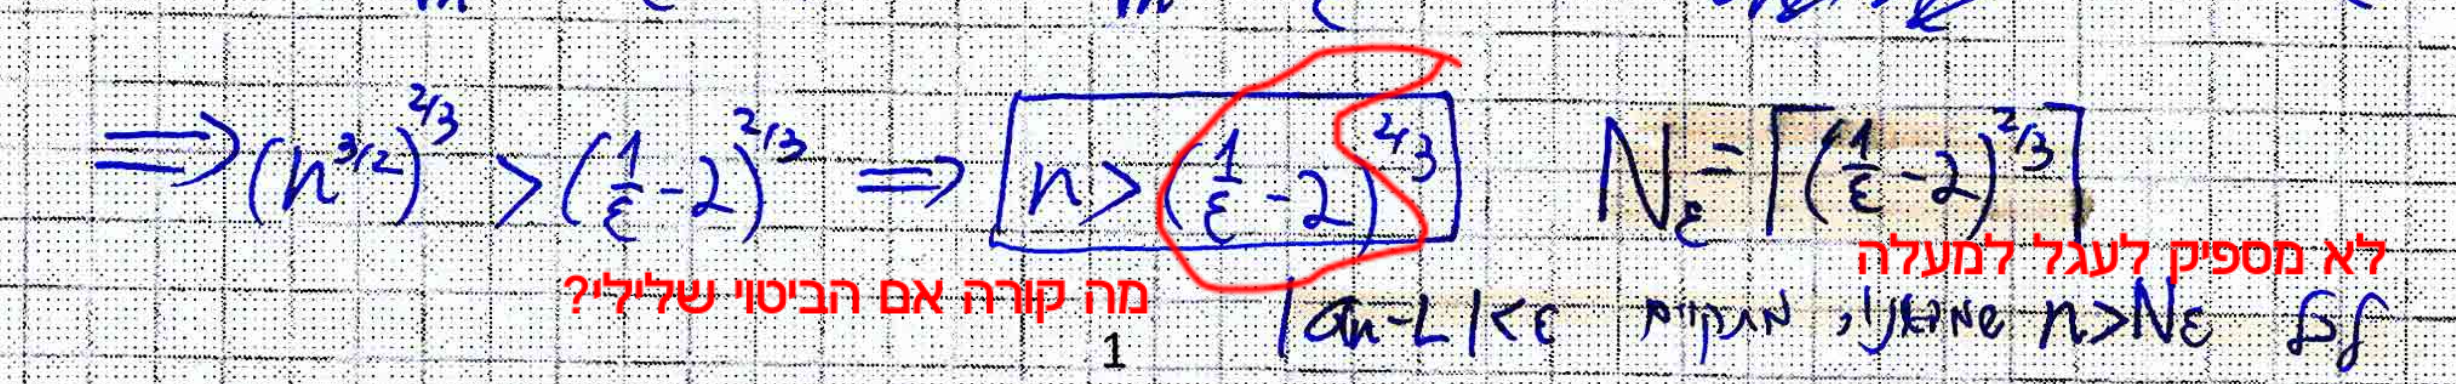 ⟹ (n^{3/2})^{2/3} > (1/ε - 2)^{2/3} ⟹ n > (1/ε - 2)^{2/3} N_ε = ⌈(1/ε - 2)^{2/3}⌉
לא מספיק לעגל למעלה
מה קורה אם הביטוי שלילי?
לכל n>N_ε שמצאנו, מתקיים |a_n-L|<ε
1